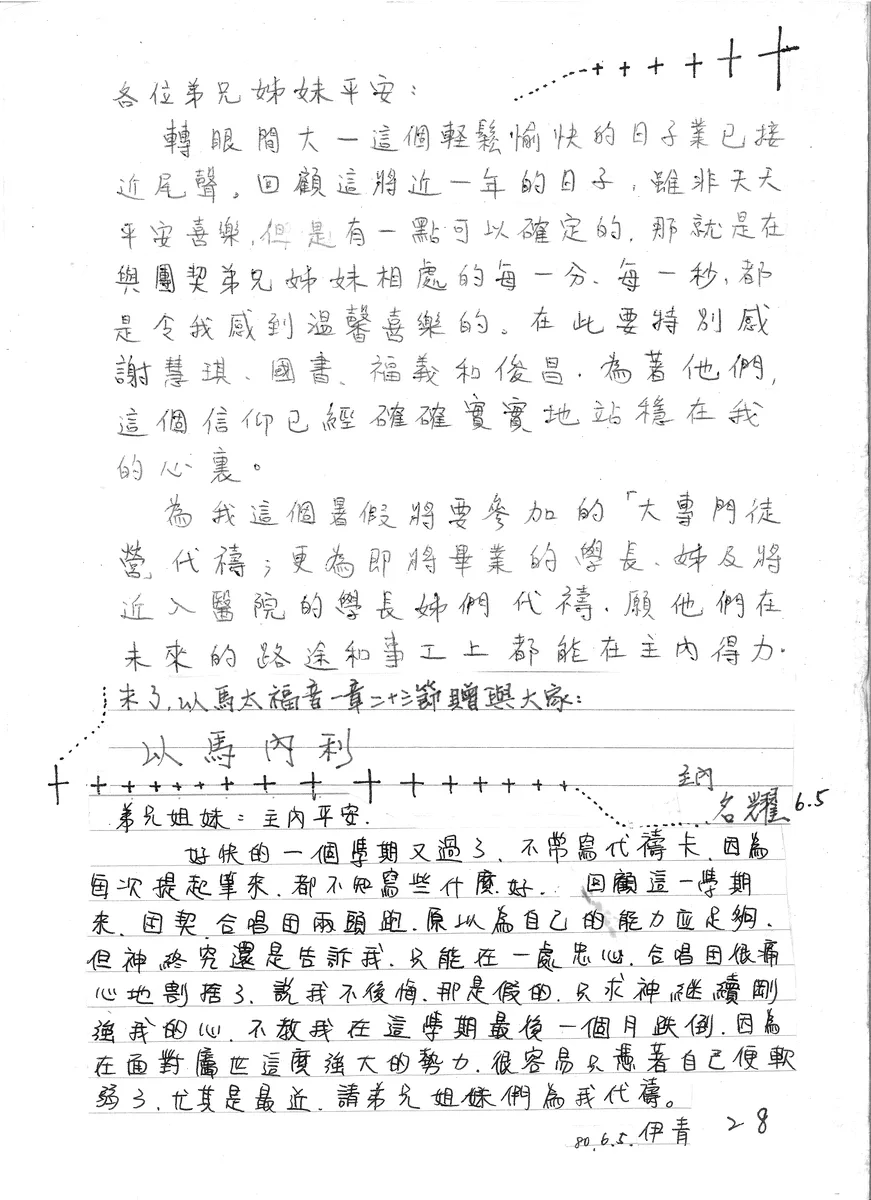 各位弟兄姊妹平安：
轉眼間大一這個輕鬆愉快的日子業已接
近尾聲。回顧這將近一年的日子，雖非天天
平安喜樂，但是有一點可以確定的，那就是在
與團契弟兄姊妹相處的每一分、每一秒，都
是令我感到溫馨喜樂的。在此要特別感
謝慧琪、國書、福義和俊昌，為著他們，
這個信仰已經確確實實地站穩在我
的心裏。
為我這個暑假將要參加的「大專門徒
營代禱；更為即將畢業的學長、姊及將
近入醫院的學長姊們代禱，願他們在
未來的路途和事工上都能在主內得力.
末了，以馬太福音一章二十三節贈與大家：
以馬內利
主內
名耀 6.5
弟兄姐妹：主內平安.
好快的一個學期又過了，不常寫代禱卡，因為
每次提起筆來，都不知寫些什麼好. 回顧這一學期
來，团契、合唱团兩頭跑，原以為自己的能力应足夠，
但神終究還是告訴我，只能在一處忠心，合唱团很痛
心地割捨了，說我不後悔，那是假的，只求神継續剛
強我的心，不教我在這學期最後一個月跌倒，因為
在面對屬世這麼強大的勢力，很容易只憑著自己便軟
弱了，尤其是最近，請弟兄姐妹們為我代禱。
80.6.5. 伊青
28